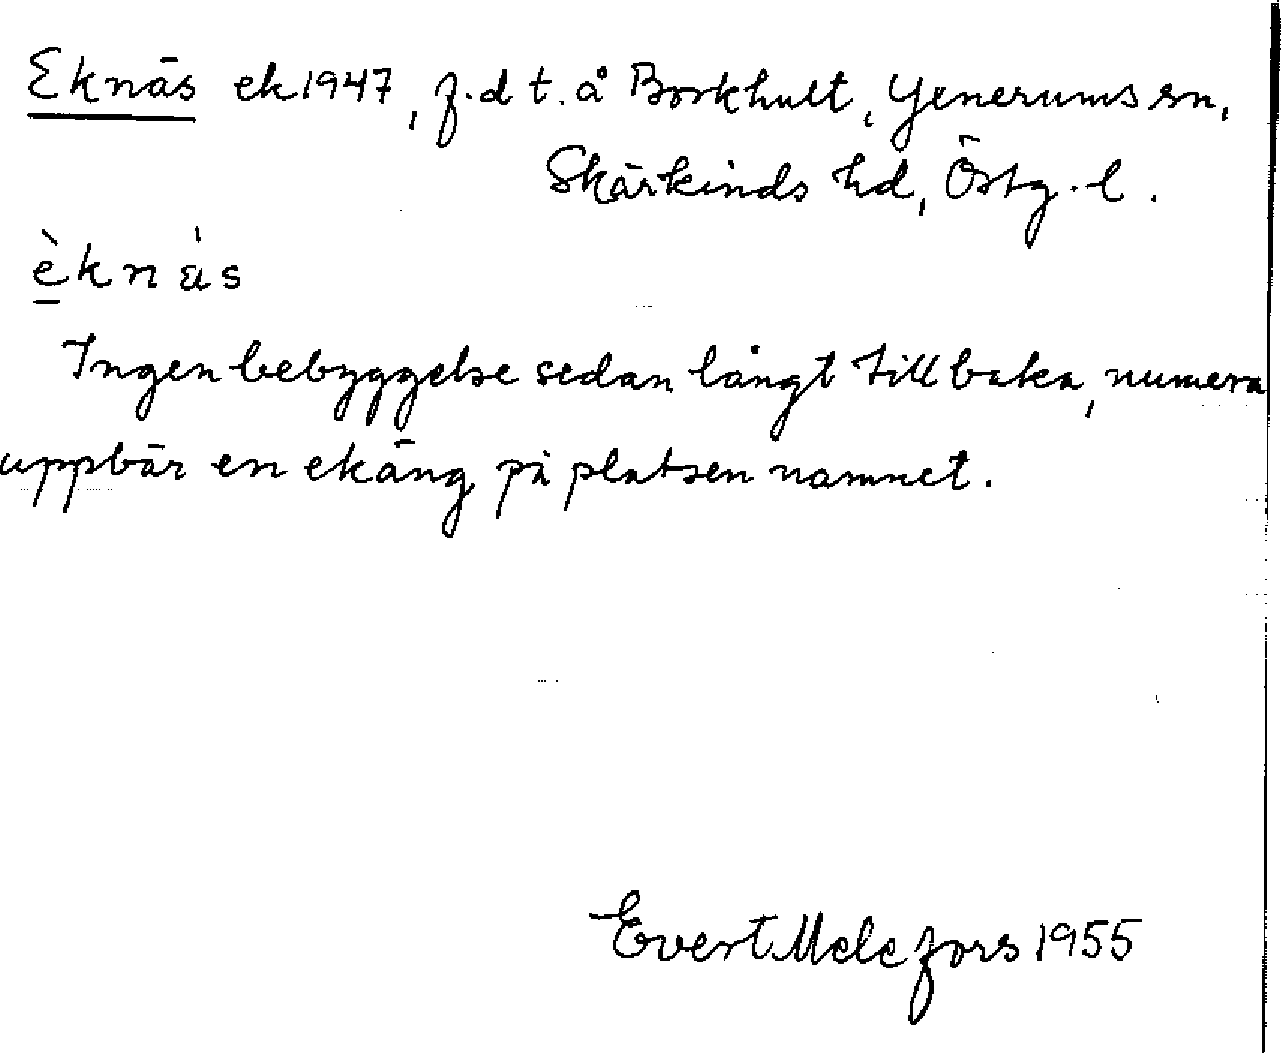 Eknäs ek 1947, f.d t. å Borkhult, Yxnerums sn,
Skärkinds hd, Östg. l.
è̱knä̀s
Ingen bebyggelse sedan långt tillbaka, numera
uppbär en ekäng på platsen namnet.
Evert Melefors 1955